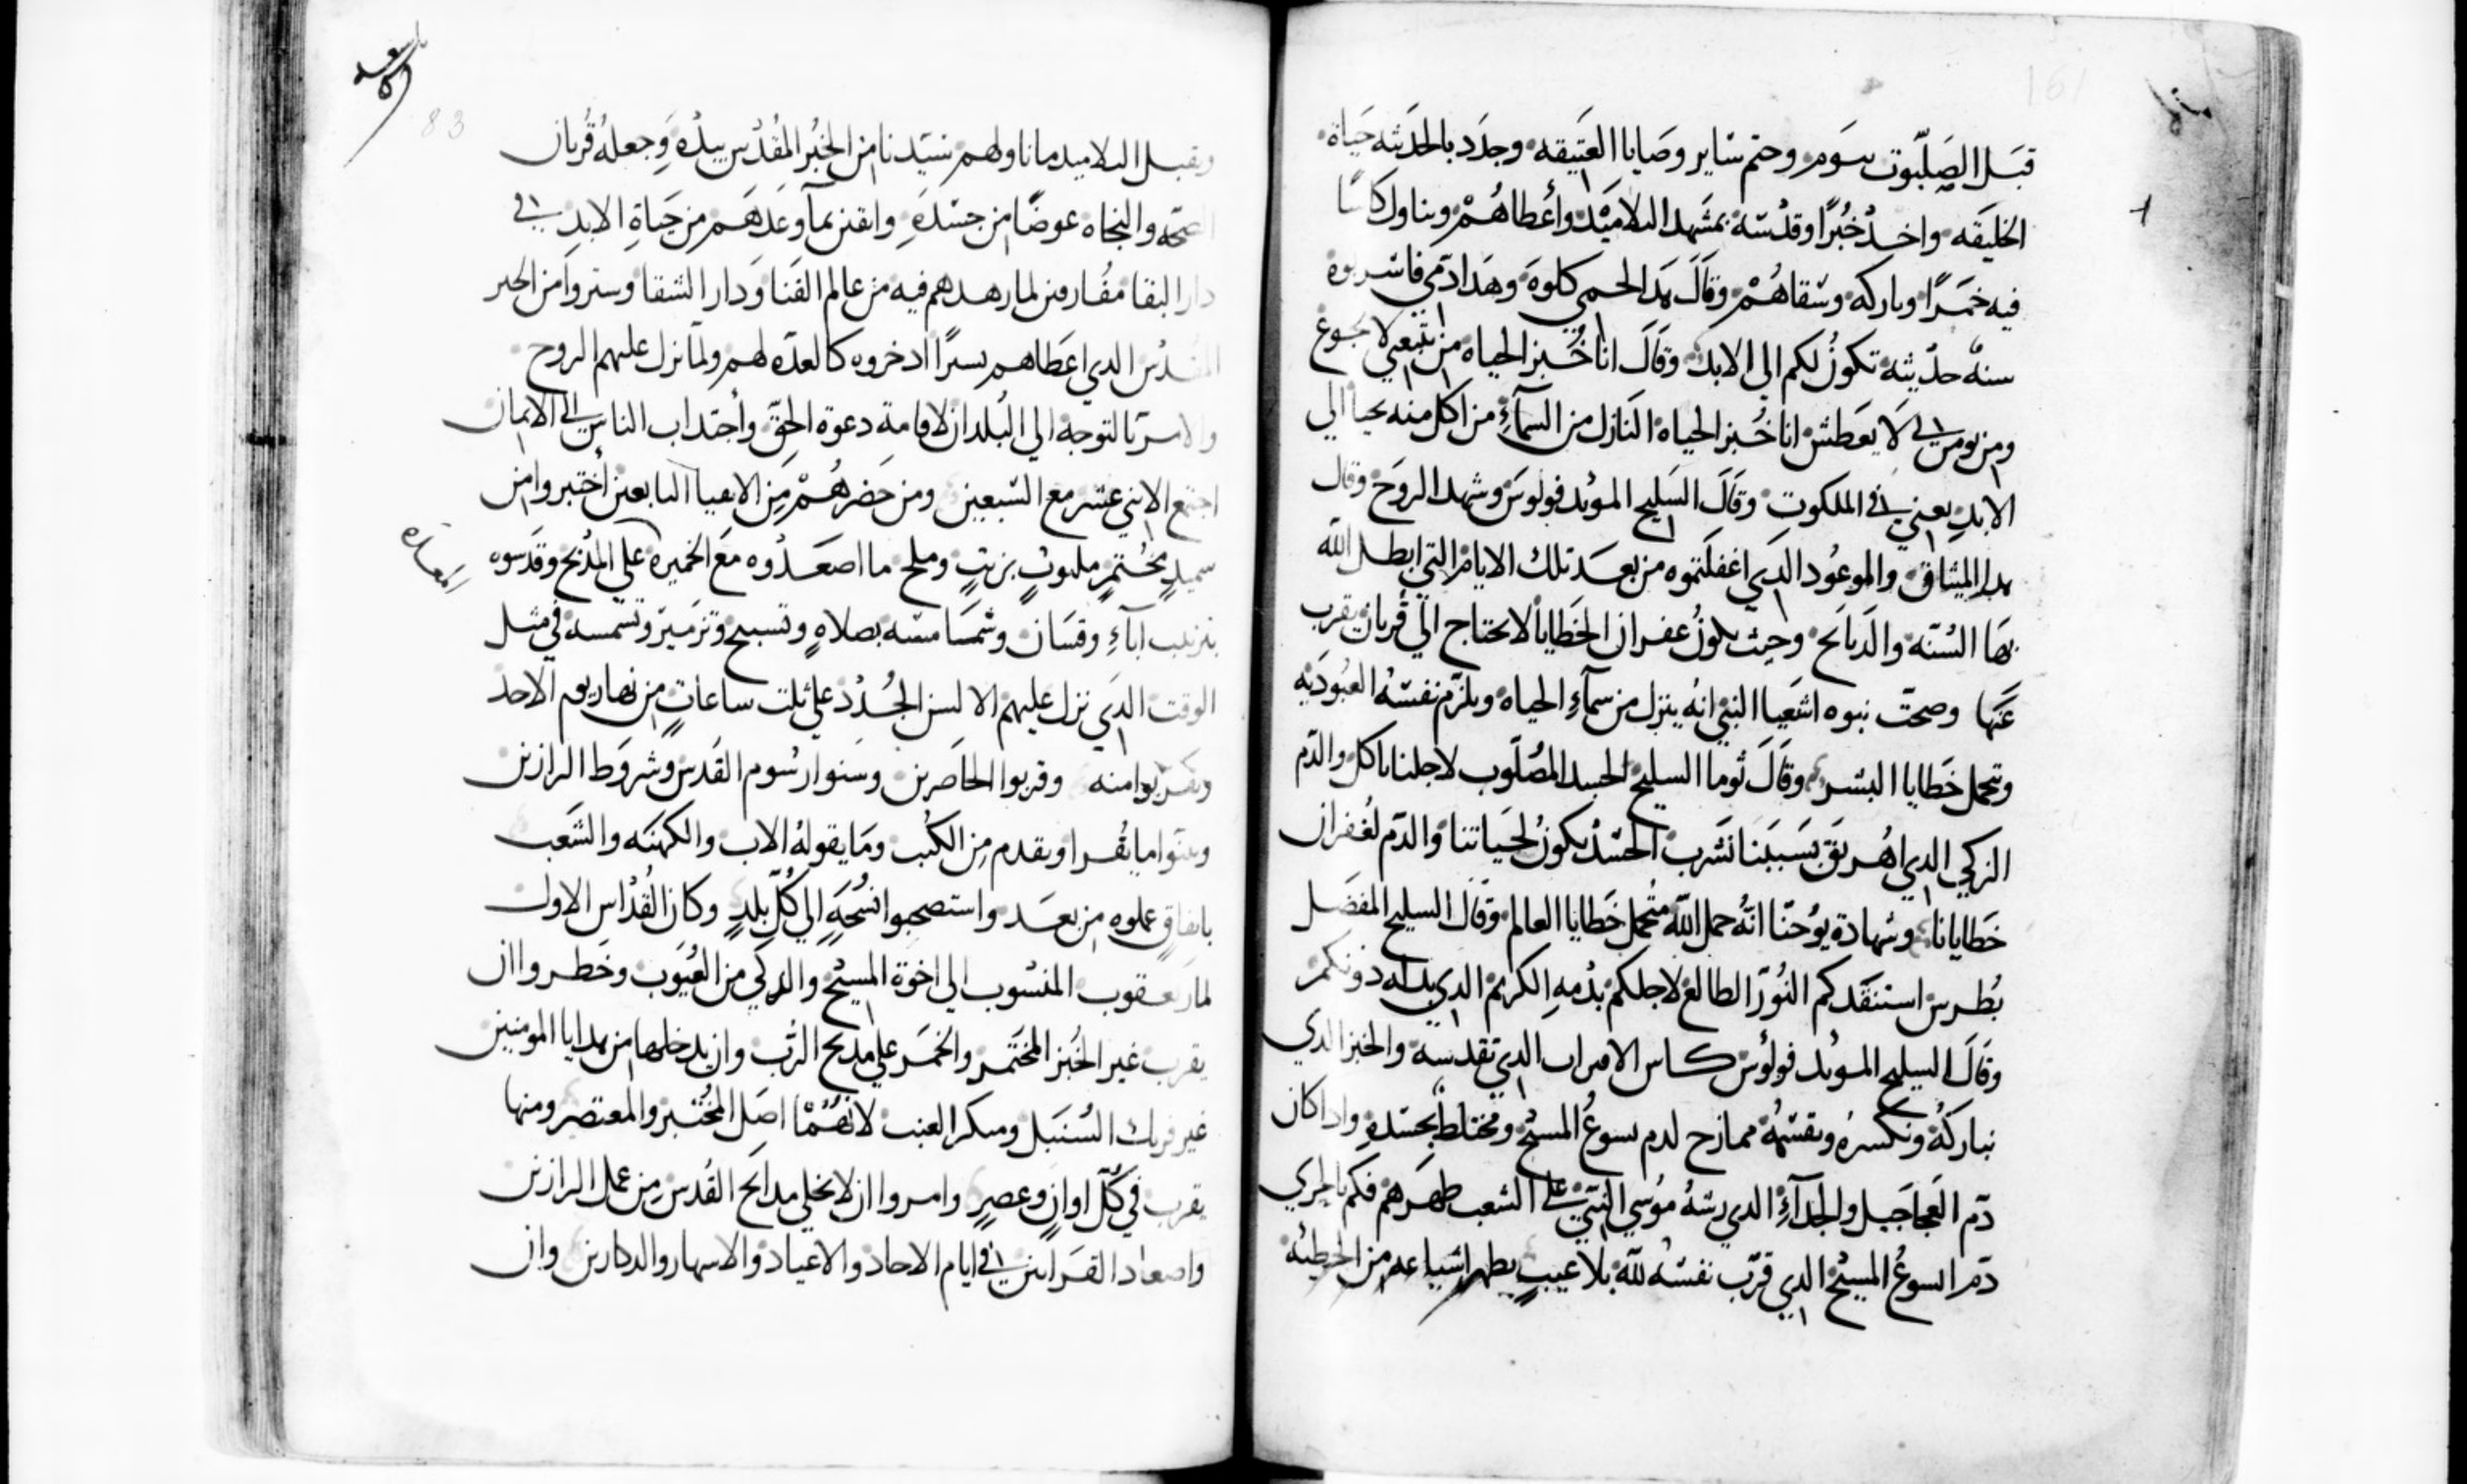 قبَل الصَلبّوت بيَوم وختم سَاير وصَايا العَتيقه وجدَد بالحَديثه حَياة
الخليقَه واخد خُبزًا وقدسَه بمشَهد التلاميَد وأعطاهُمْ وتناول كاسًا
فيه خمَرًا وباركه وسَقاهُمْ وقَالَ هَدا لحمي كلوَه وهَدا دَمي فاشربوه
سنهْ حدَيثه تكونُ لكم الي الابد وقَالَ انا خُبز الحياه من تبَعني لا يجوع
ومن يومن بي لَا يعَطش انا خُبز الحياه النَازل من السَمآءِ من اكل منه يحيا الي
الابدِ يعني في الملكوت وقَالَ السَليح المويد فولوس وشهد الروَح وقال
هدا الميثاق والموعُود الدَي اغفلتموه من بعَد تلك الايام التي ابطل الله
بهَا السُنّه والدَبايَح وحيث يكونُ غفران الخَطايا لا يحتاج الي قُربان يقرب
عَنها وصحتَ نبوه اشعَيا النبي انهُ ينزل من سمآءِ الحياه ويلزَم نفسَهُ العُبودَيه
وتحمل خطايا البشر وقَالَ توما السليح الجسد المصُلَوب لاجلنا ناكل والدَم
الزكي الدي اهُريقَ بسَببَنا نشَرب الجسَد يكونُ لحَياتنا والدَم لغُفران
خَطايانا وشهادة يوُحنّا انهُ حمل اللّه متُحمل خطايا العالم وقَال السليح المفضَل
بُطرس استنقَدكم النُورَ الطالع لاجلكم بدَمهِ الكريم الدي بدله دونكم
وقَالَ السليح المويد فولوُس كاس الاقراب الدي تقدسه والخبز الدي
نباركهُ ونكسرهُ ونقسَمهُ ممازح لدم يسوعُ المسَيح ومختلط بجسَدهِ وادا كان
دَم العَجاجَيل والجَدآءِ الدي رشهُ موُسي النبَي علي الشَعب طهَرهم فكم بالحري
دَم ايسوعُ المسَيح الدي قرّب نفسَهُ للّه بلا عيبٍ يطهر اشياعه من الخطيئه
وتقبل التلاميد ما ناولهم سَيدنا من الخبُز المُقدَس بيدَه وَجعلهُ قُربان
الصحَه والنجاه عوضًا من جسَدَهِ واتقن بمآ وعَدهَم من حَياةِ الابدِ في
دار البقا مفُارقين لما زهدهم فيه من عالم الفَنا وَدار الشقا وستروآ من الخبز
المقُدس الدي اعَطاهم سرًا ادخروه كالعدَه لهم ولمآ نزل عليهم الروح
والامر بَالتوجه الي البُلدان لاقامة دعوة الحق وأجتداب الناس الي الايمان
اجتمَع الاثني عشر مع السَبعين ومن حَضرهُمْ مِن الاتقيا التابعين أختبروا من
سميدٍ مختُمرٍ ملتوتٍ بزيتٍ وملح ما اصعَدُوه معَ الخميره علي المدُبح وقدَسوه
بترتيب ابآءِ وقسَان وشمَامسَه بصلاهٍ وتسبيح وتزميَر وتشمسه في مثل
الوقت الدَي نزل عليهم الالسن الجُدد علي ثلت ساعاتٍ من نهار يوم الاحد
وتقربوا منه وقربوا الحاضرين وسنوا رسُوم القَدس وشروَط الرازين
وبينوا ما يقُرا ويقدم مِن الكُتب ومَا يقولهُ الاب والكهنَه والشَعب
باتفاقٍ عملوه من بعَد واستصحبوا نُسخَهٍ الي كُلّ بلدٍ وكان القُدّاس الاول
لمار يعقوب المنسُوب الي اخوة المسيَح والزكي من العُيوَب وحظروا ان
يقرب غير الخُبز المختَمر والخمَر علي مدبح الرُب وان يدخلها من هدايا المومنين
غير فريك السُنبَل وسكر العنب لانهُمْا اصَل المختُبز والمعتصر ومنها
يقرب في كُلّ اوانٍ وعصرٍ وامروا ان لا يخلي مدابَح القُدس مِن عمل الرازين
واصعَاد القَرابين في ايام الاحاد والاعياد والاسهار والدكارين وان
83
161